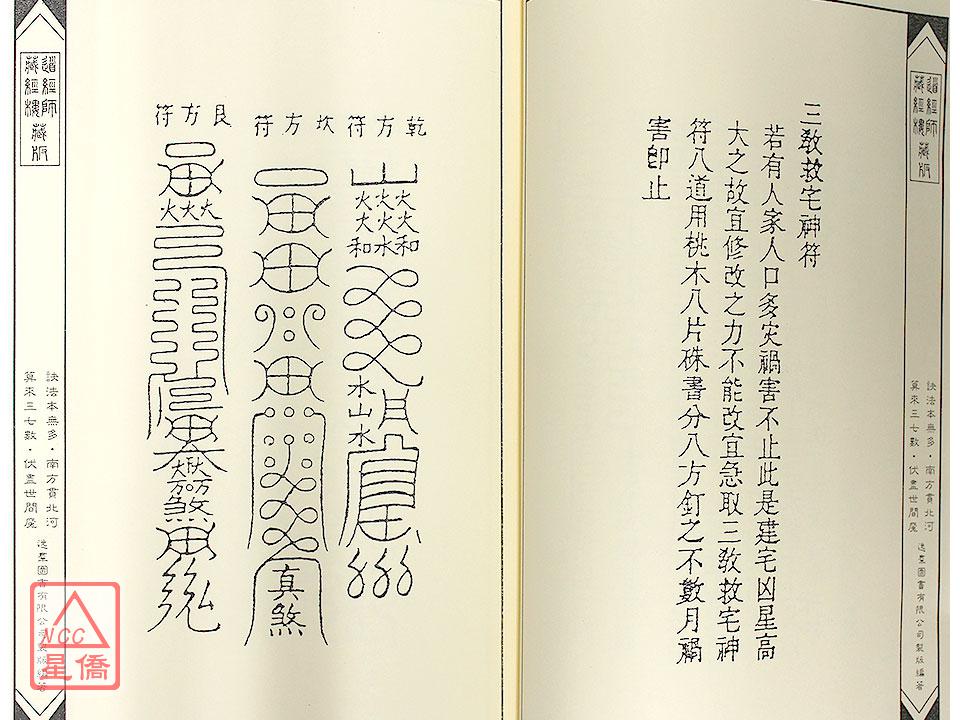 三教救宅神符
若有人家人口多災禍害不止此是建宅凶星高
大之故宜修改之力不能改宜急取三教救宅神
符八道用桃木八片硃書分八方釘之不數月禍
害即止
乾方符
坎方符
艮方符
真煞
道經師
藏經樓
藏版
訣法本無多·南方貫北河
算來三七數·伏盡世間魔
逸羣圖書有限公司製版編著
道經師
藏經樓
藏版
訣法本無多·南方貫北河
算來三七數·伏盡世間魔
NCC
星僑